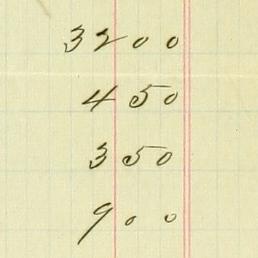 3200
450
350
900